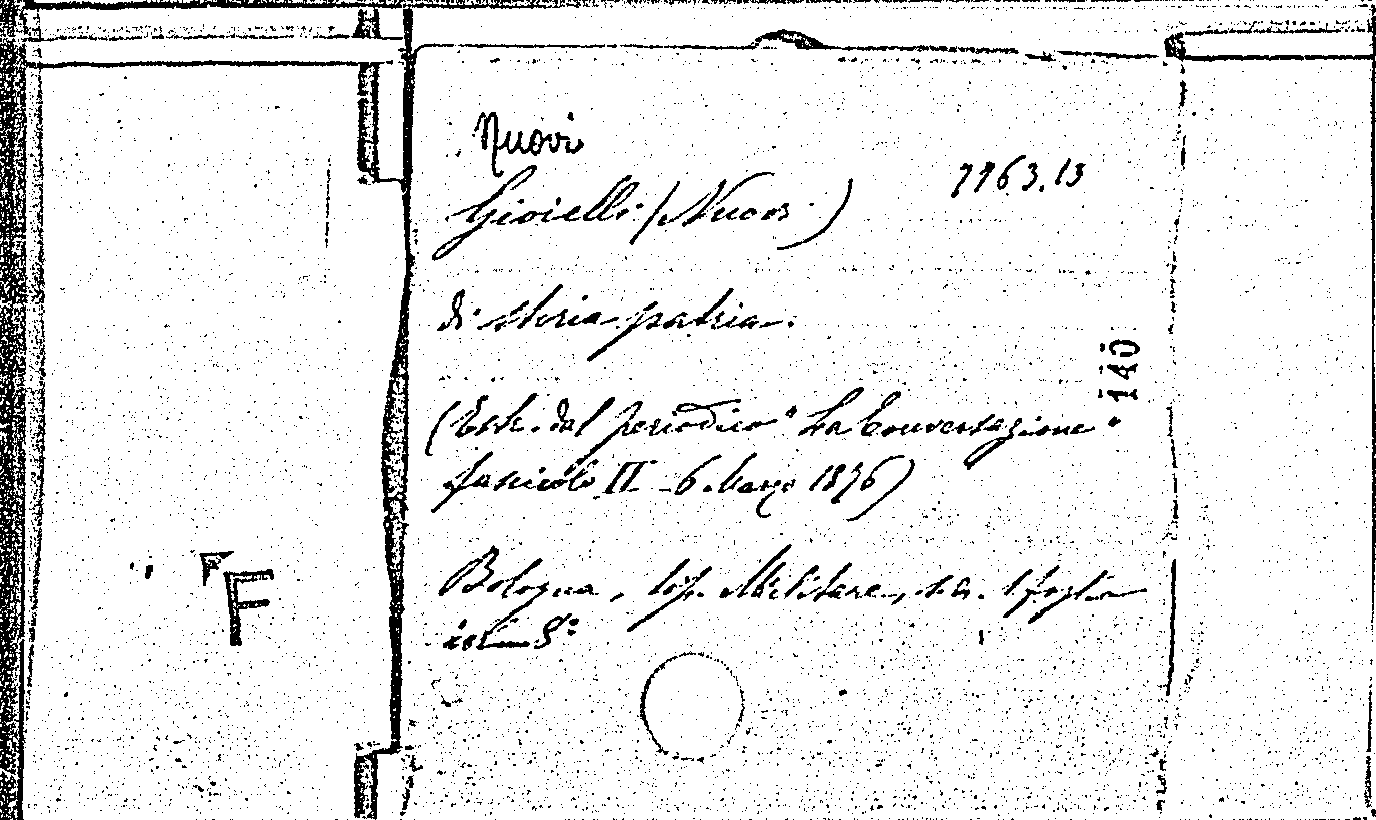 Nuovi
7763.13
Gioielli (Nuovi)
di storia patria.
140
(Estr. dal periodico "La Conversazione"
fascicolo II - 6 Marzo 1876)
Bologna, tip. Militare, s.a. 1 foglio
in 8°
F